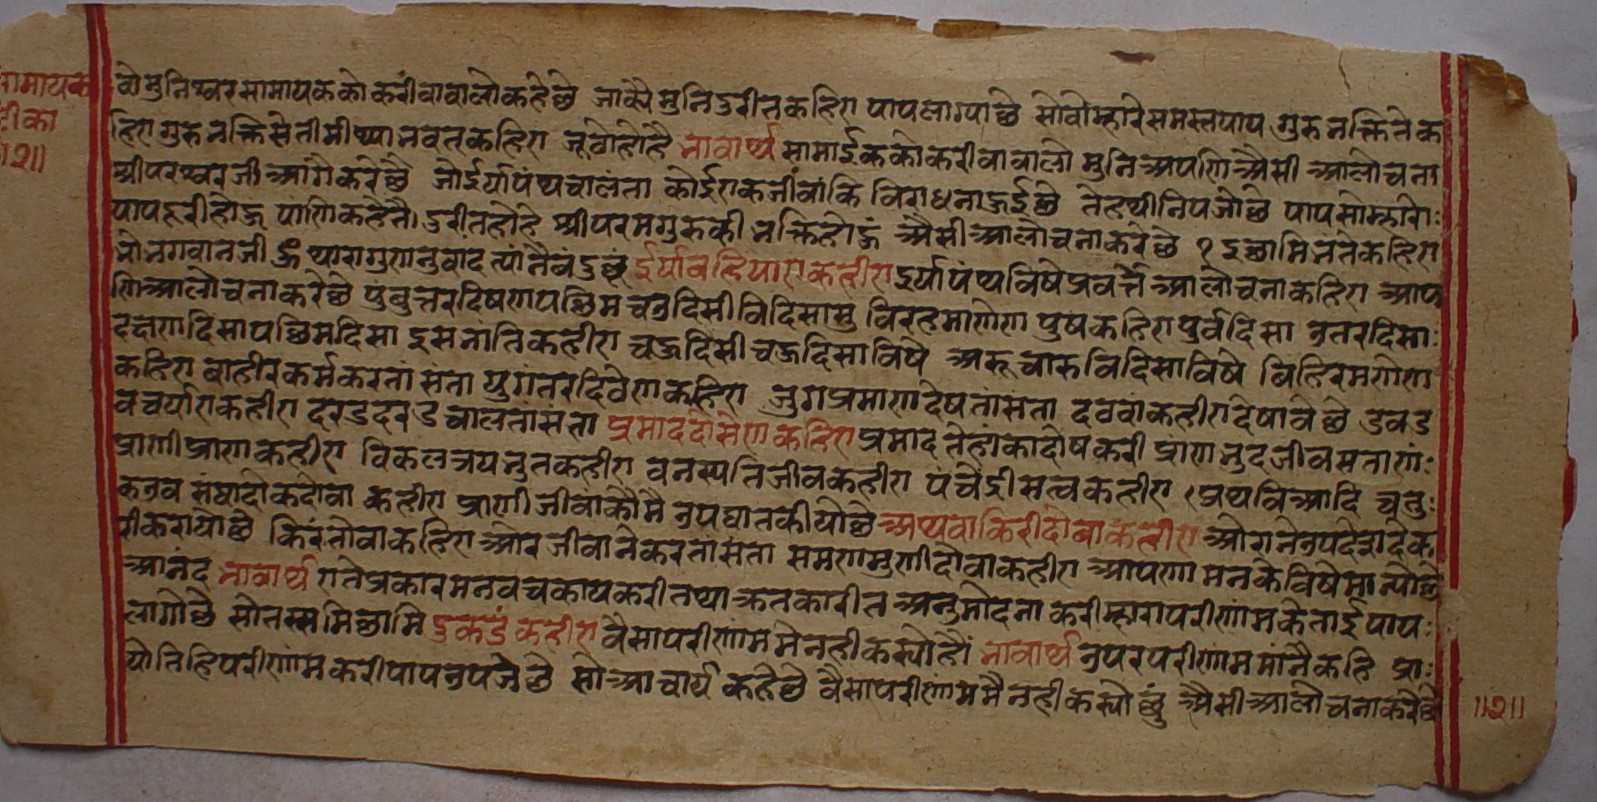 सामायक
टीका
॥२॥
वो मुनिश्वर सामायकको करीवा वालो कहे छे जाकरै मुनि दुरीत कहिए पाप लाग्या छे सो वो म्हारे समस्त पाप गुरु भक्तिने क
हिए गुरु भक्ति सेती मीथ्या भवत कहिए जूवो होहै भावार्थ सामाईकको करीवा वालो मुनि आपणि ऐसी आलोचना
श्रीपरश्वरजी आगै करे छै जो ईर्यापंथ चालंता कोई एक जीवांकि विराधना हुई छे तेहथी निपजो छे पाप सो म्हारो
पाप दूरी होऊ पाणि कहेनै। दुरीत होहे श्रीपरमगुरुकी भक्ति होऊं ऐसी आलोचना करे छे १ इछामि भंते कहिए
भो भगवानजी थारा गुणानुवाद ईर्यावहियाए कहीए ईर्यापंथ विषे प्रवर्त्ते आलोचना कहिए आप
णि आलोचना करे छे पुवुत्तर दिषण पछिम चउदिसी विदिसासु विरहमाणेण पुष कहिए पुर्व दिसा उतर दिसा
दक्षण दिसा पछिम दिसा इस भाति कहीए चऊदिसी चऊदिसा विषे अरू चारु विदिसा विषे विहिरमणेण
कहिए वाहीर कर्म करतां सता युगंतर दिवेण कहिए जुग प्रमाण देषतां सता दववा कहीए देषावे छे डवड
वचर्याए कहीए दरडदरड चालता सता प्रमाद दोसेण कहिए प्रमाद तेहांका दोष करी प्राण भुद जीव सताणं
प्राणी प्राण कहीए विकलत्रय भुत कहीए वनस्पति जीव कहीए पंचेंद्री सत्व कहीए प्रथवि आदि चतु
कउव संघादो कदोवा कहीए प्राणी जीवाको मै उपघात कीयो छे अथवा किरीदो वा कहीए औराने उपदेश देक
रीकरायो छै किरंतो वा कहिए और जीवाने करता संता समणुमुणीदो वा कहीए आपणा मनके विषे मान्यो छे
आनंद भावार्थ एते प्रकार मन वच काय करी तथा क्रत कारीत अनुमोदना करी म्हारा परीणाम के ताई पाप
लागो छै सो तस्स मिछामि दुकडं कहीए वैसा परीणाम मे नही कस्यो है। भावार्थ उपर परीणाम मानै कहि प्रा
यो तिहि परीणाम करी पाप उपजे छे सो आचार्य कहे छे वैसा परीणाम मै नही कस्यो छुं ऐसी आलोचना करे छे
॥२॥